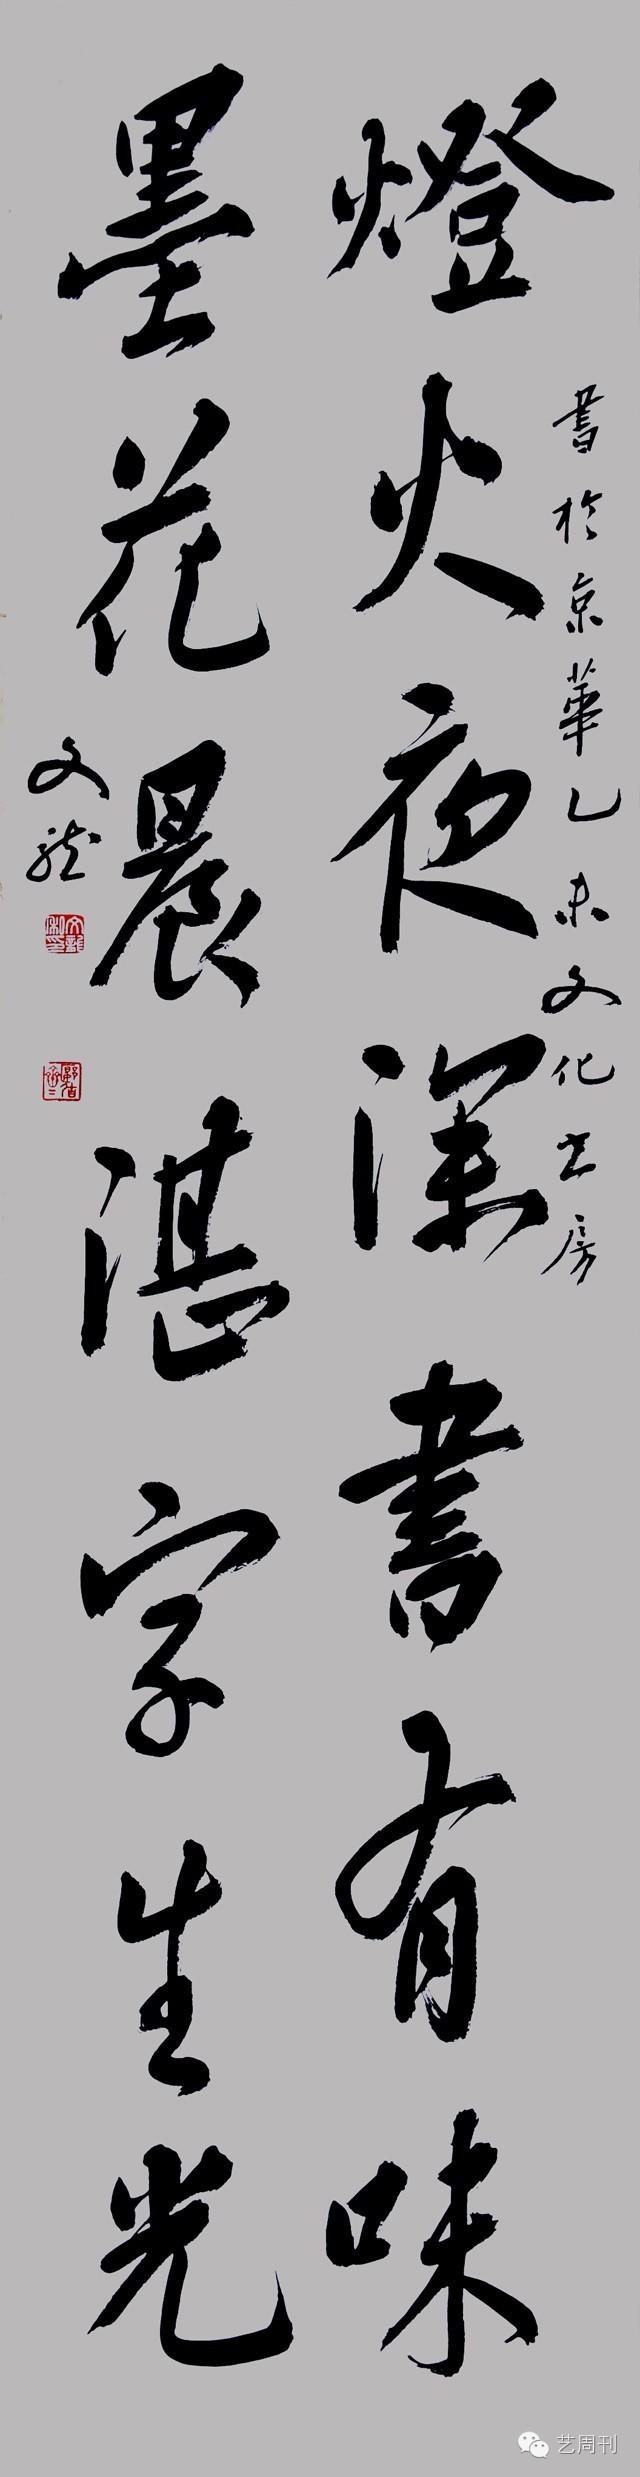 燈火夜深書有味
墨花晨湛字生光
書於京華乙未文化書房
文龍
文龍
艺周刊